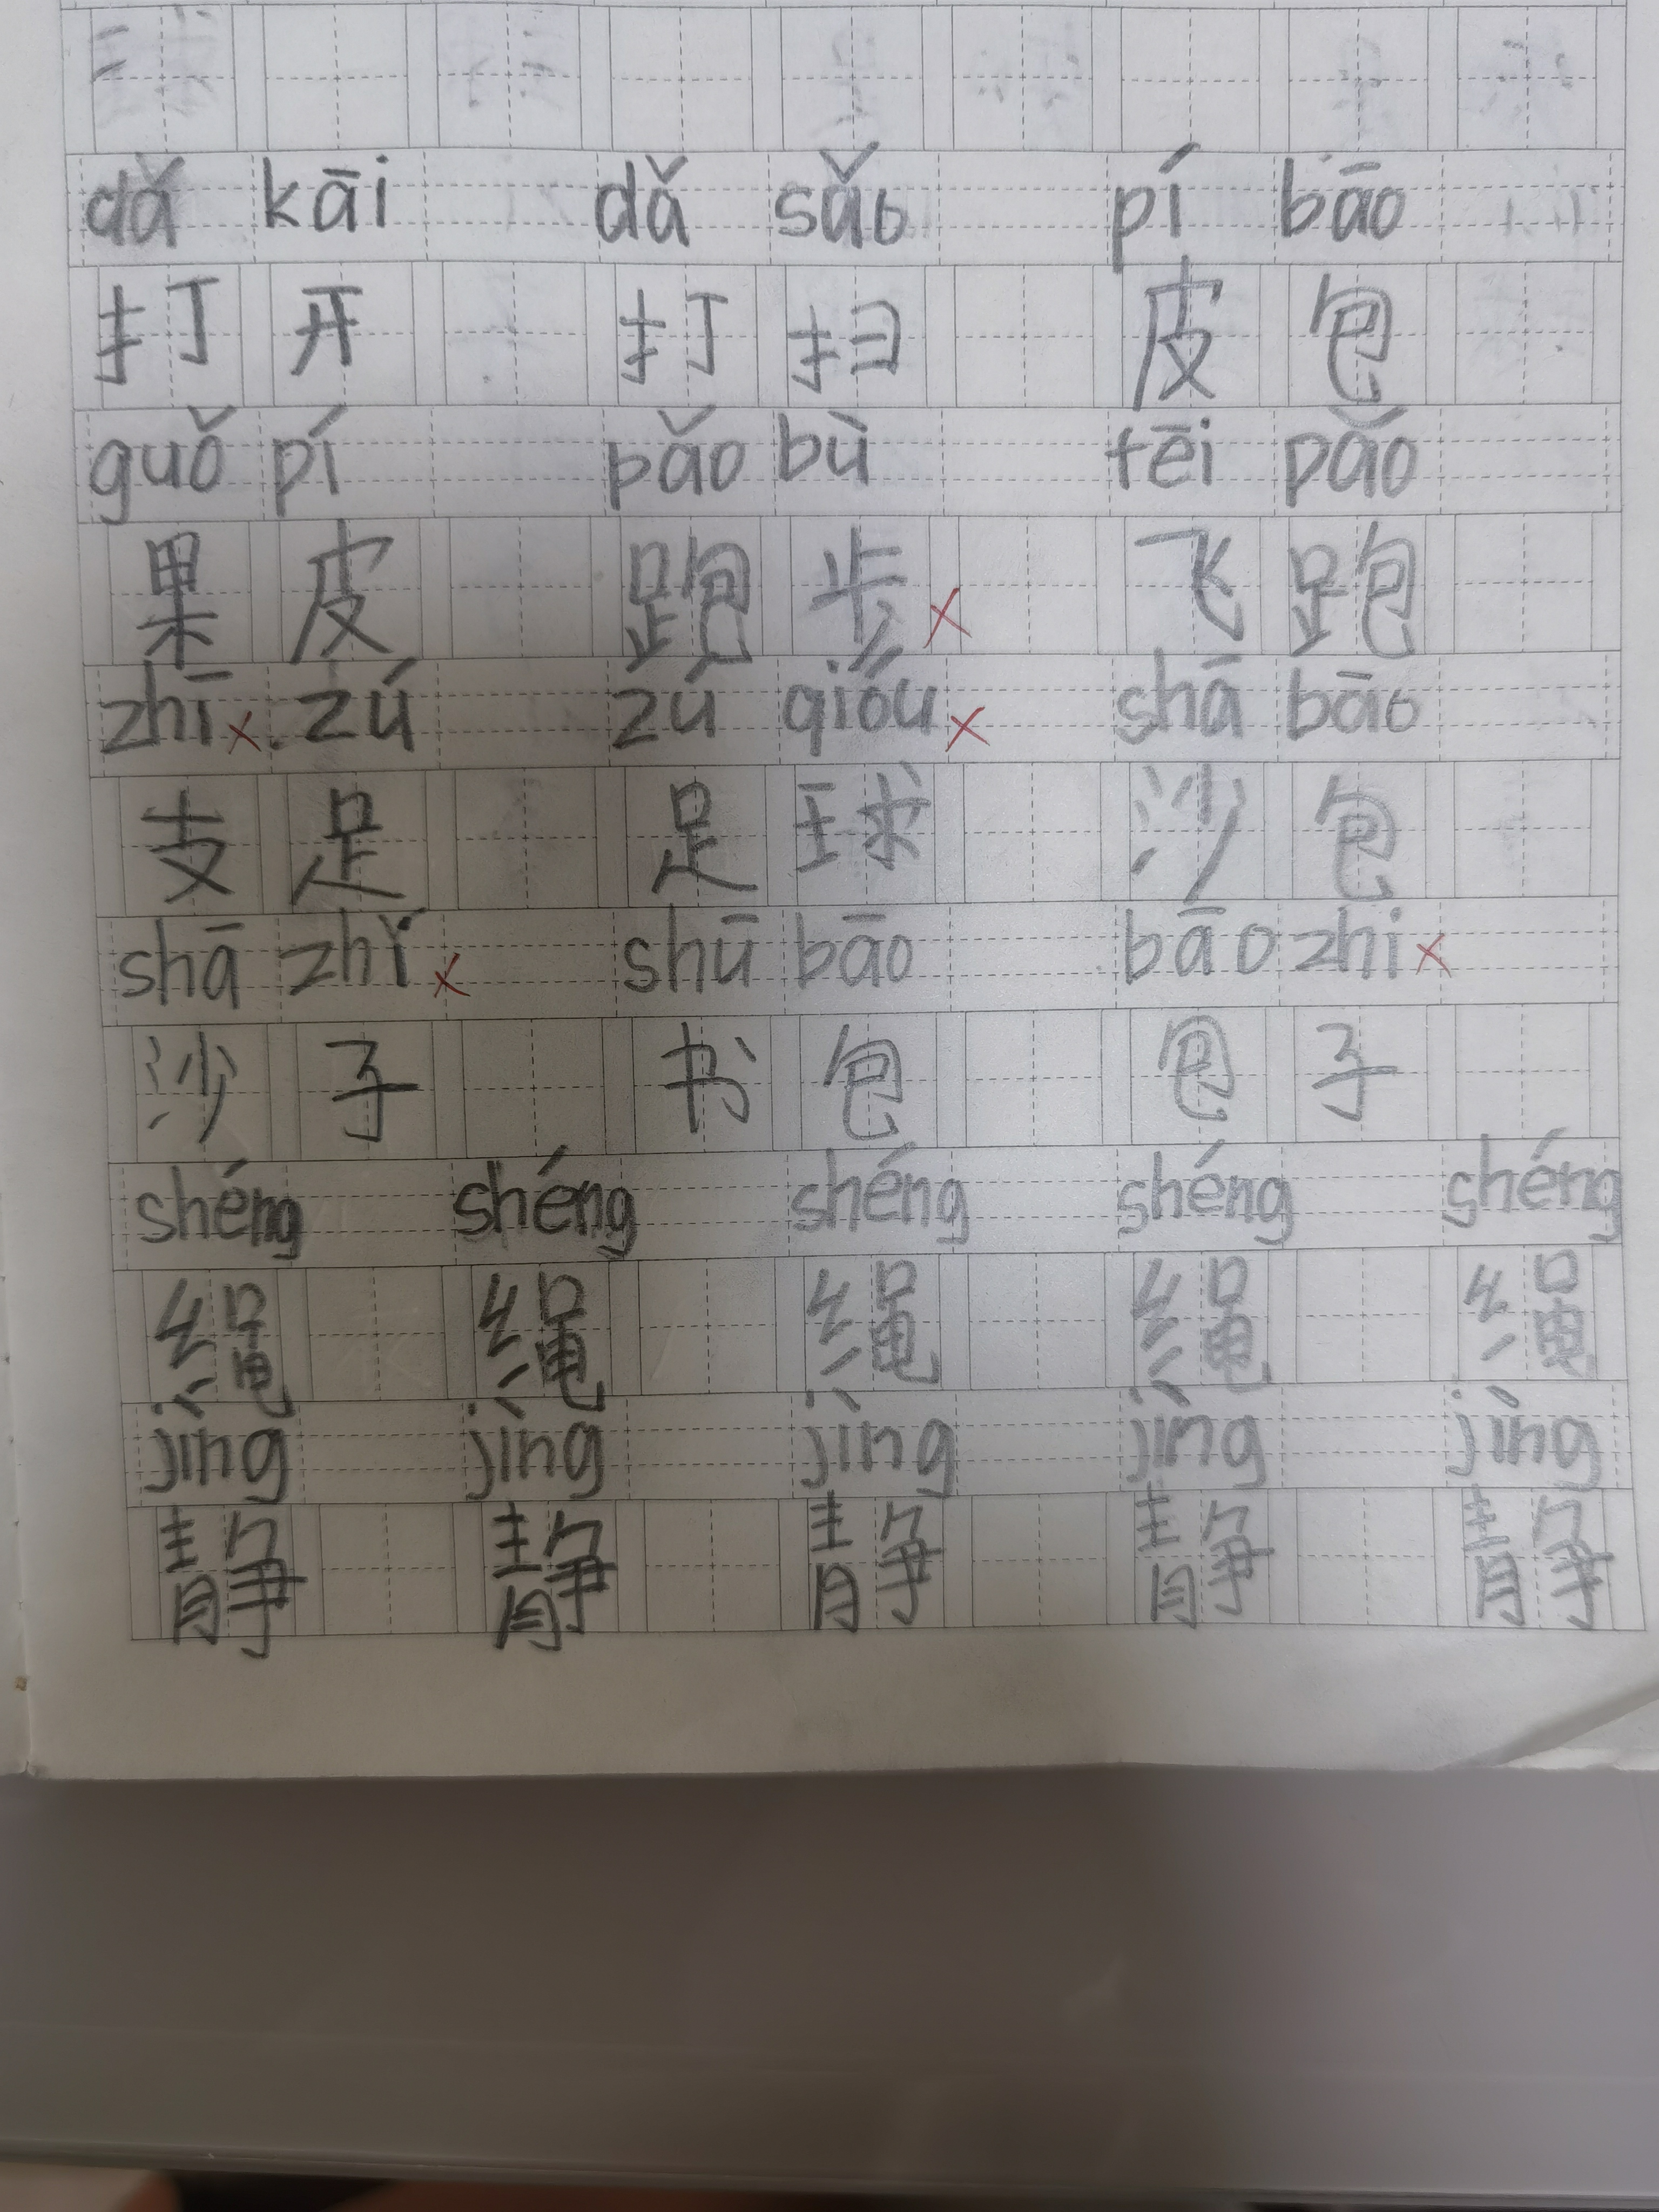 dǎ kāi dǎ sǎo pí bāo
打 开 打 扫 皮 包
guǒ pí pǎo bù fēi pǎo
果 皮 跑 步 × 飞 跑
zhī × zú zú qióu × shā bāo
支 足 足 球 沙 包
shā zhǐ × shū bāo bāo zhi ×
沙 子 书 包 包 子
shéng shéng shéng shéng shéng
绳 绳 绳 绳 绳
jìng jìng jìng jìng jìng
静 静 静 静 静